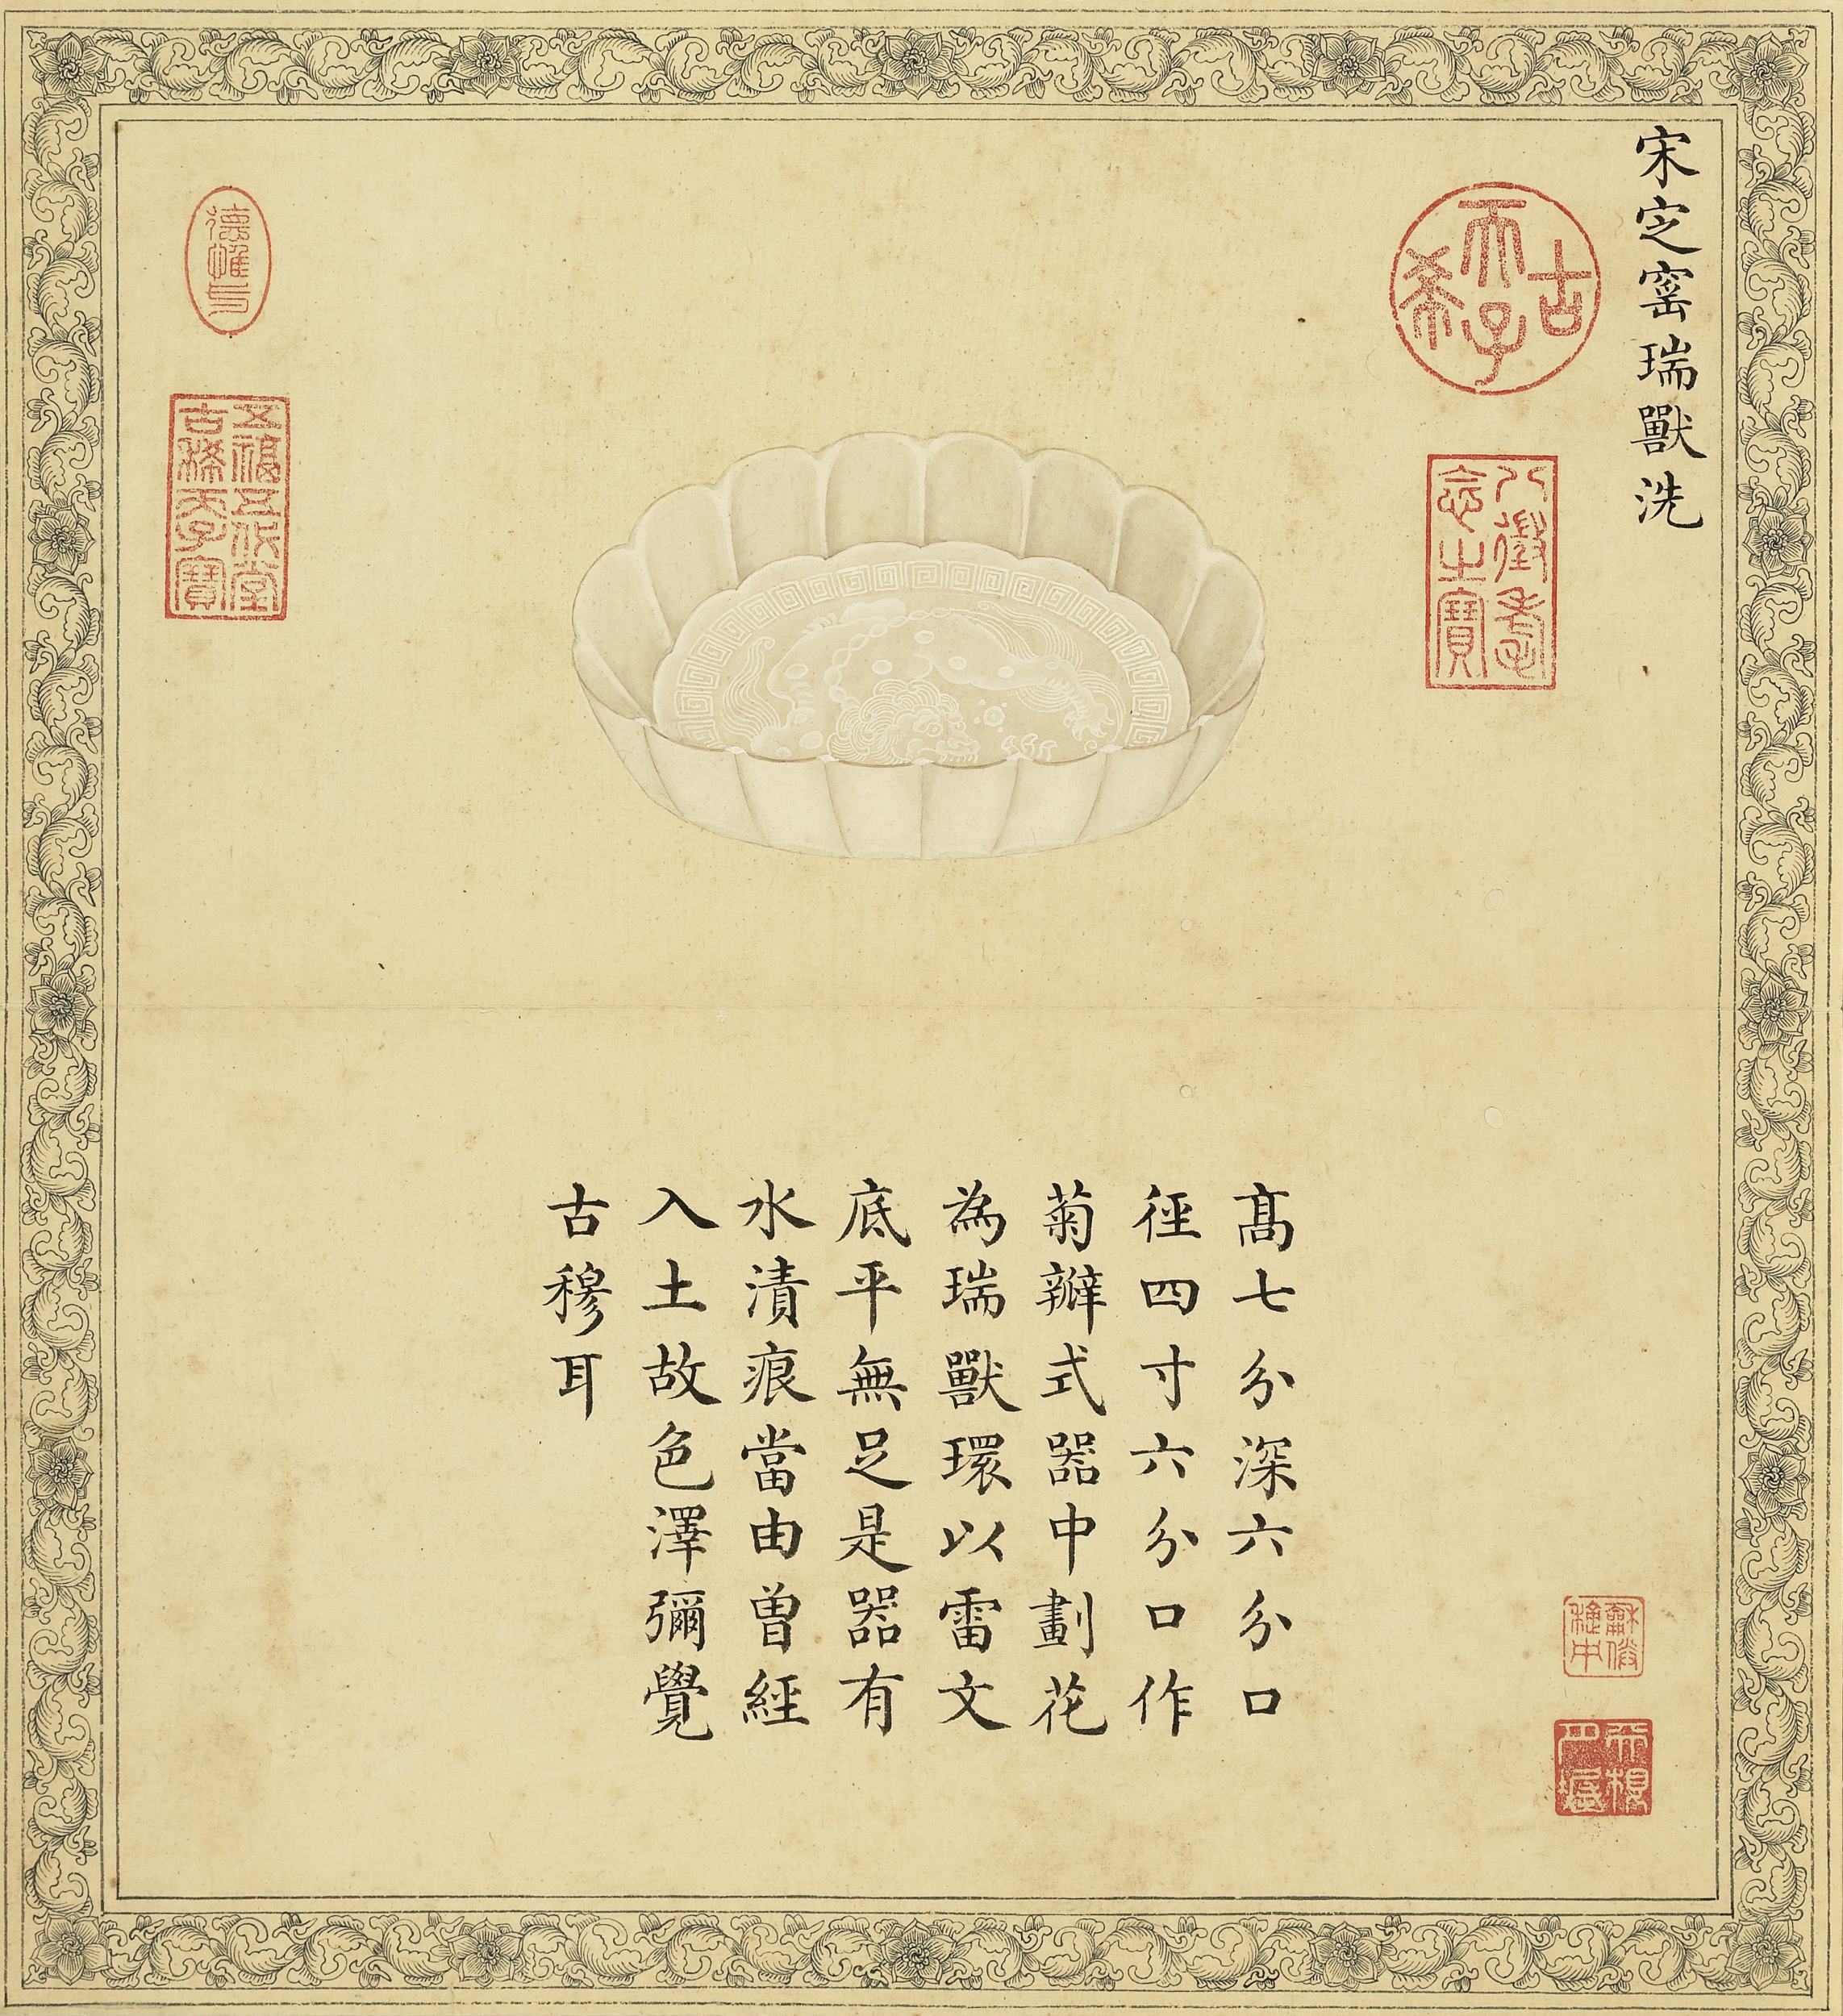 宋定窰瑞獸洗
古希天子
八徵耄念之寶
德惟馨
五福五代堂古稀天子寶
高七分深六分口
徑四寸六分口作
菊瓣式器中劃花
為瑞獸環以雷文
底平無足是器有
水漬痕當由曾經
入土故色澤彌覺
古穆耳